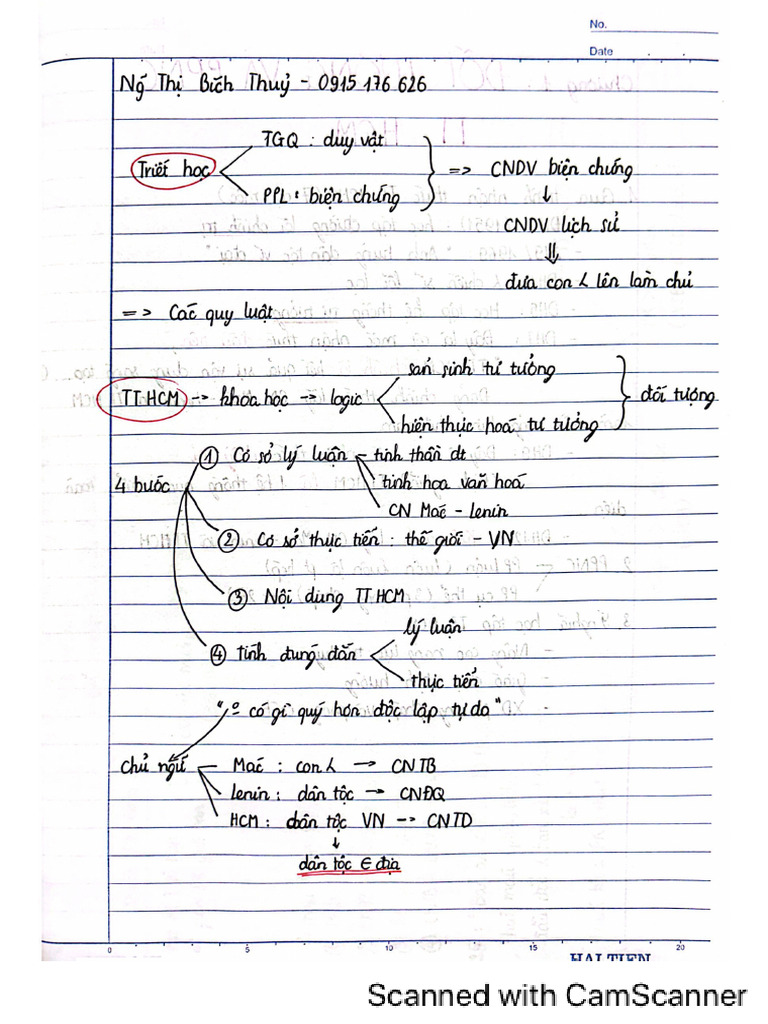 No.
Date
Ng̃ Thị Bích Thuỷ - 0915 176 626
TGQ : duy vật
Triết học => CNDV biện chứng
PPL : biện chứng
↓
CNDV lịch sử
⇓
đưa con L lên làm chủ
=> Các quy luật
sản sinh tư tưởng
TT HCM -> khoa học -> logic đối tượng
hiện thực hoá tư tưởng
① Cơ sở lý luận - tinh thần dt
4 bước tinh hoa văn hoá
CN Mác - Lênin
② Cơ sở thực tiễn : thế giới - VN
③ Nội dung TT HCM
lý luận
④ tính đúng đắn
thực tiễn
" º có gì quý hơn độc lập tự do "
chủ ngữ - Mác : con L -> CNTB
Lênin : dân tộc -> CNĐQ
HCM : dân tộc VN -> CNTD
↓
dân tộc ∈ địa
0 5 10 15 20
HẢI TIẾN
Scanned with CamScanner